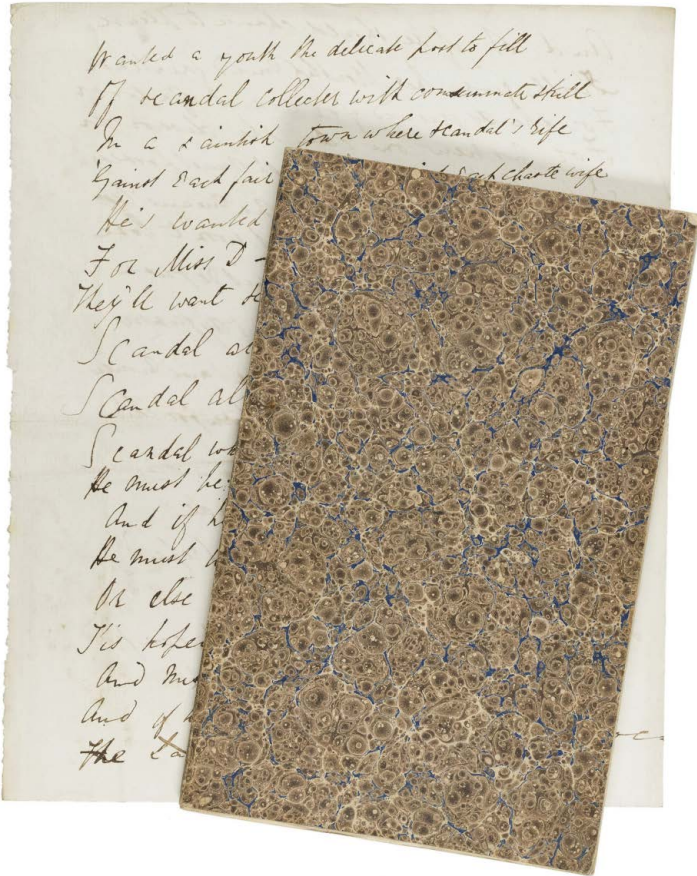 Wanted a youth the delicate post to fill
Of scandal collecter with consummate skill
In a saintish town where scandal's rife
'Gainst each fair each chaste wife
He's wanted
For Miss D -
They'll want
Scandal
Scandal
Scandal
He must be
And if
He must
Or else
'Tis hope
And
And of
The